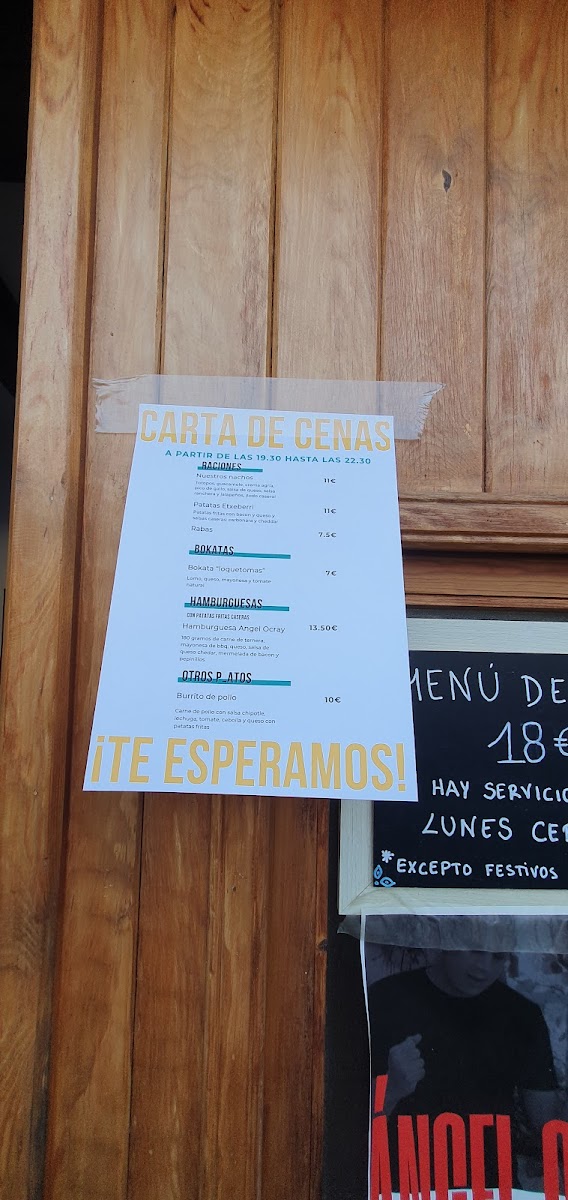 CARTA DE CENAS
A PARTIR DE LAS 19.30 HASTA LAS 22.30
RACIONES
Nuestros nachos 11€
pico de gallo, salsa de queso, salsa
Patatas Etxeberri 11€
Patatas fritas con bacon y queso y
salsas caseras: carbonara y cheddar
Rabas 7.5€
BOKATAS
Bokata "loquetomas" 7€
Lomo, queso, mayonesa y tomate
natural
HAMBURGUESAS
CON PATATAS FRITAS CASERAS
Hamburguesa Angel Ocray 13.50€
180 gramos de carne de ternera,
mayonesa de bbq, queso, salsa de
queso chedar, mermelada de bacon y
pepinillos
OTROS P_ATOS
Burrito de pollo 10€
Carne de pollo con salsa chipotle,
lechuga, tomate, cebolla y queso con
patatas fritas
¡TE ESPERAMOS!
MENÚ DE
18€
HAY SERVICIO
LUNES CER
*EXCEPTO FESTIVOS
ÁNGEL